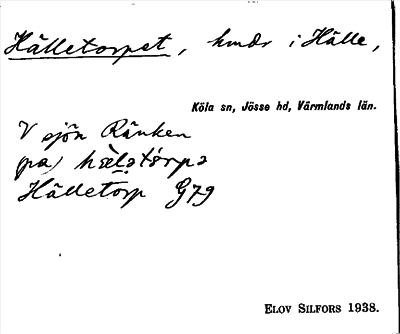 Hälletorpet, hmdr i Hälle,
Köla sn, Jösse hd, Värmlands län.
V sjön Ränken
pa) hæ̀lətórpə
Hälletorp G79
ELOV SILFORS 1938.